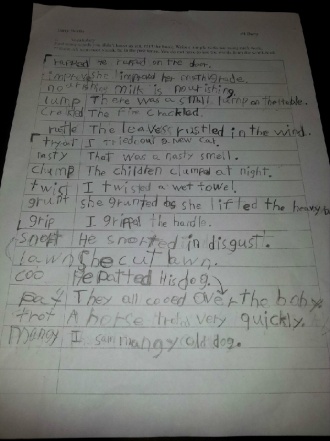 rapped He rapped on the door.
improve She improved her math grade.
nourish Milk is nourishing.
lump There was a small lump on the table.
crackle The fire crackled.
rustle The leaves rustled in the wind.
tryout I tried out a new cat.
nasty That was a nasty smell.
clump The children clumped at night.
twist I twisted a wet towel.
grunt she grunted as she lifted the heavy
grip I gripped the handle.
snort He snorted in disgust.
lawn She cut lawn.
coo He patted His dog.
pat They all cooed over the baby.
trot A horse trots very quickly.
Mangy I saw mangy old dog.